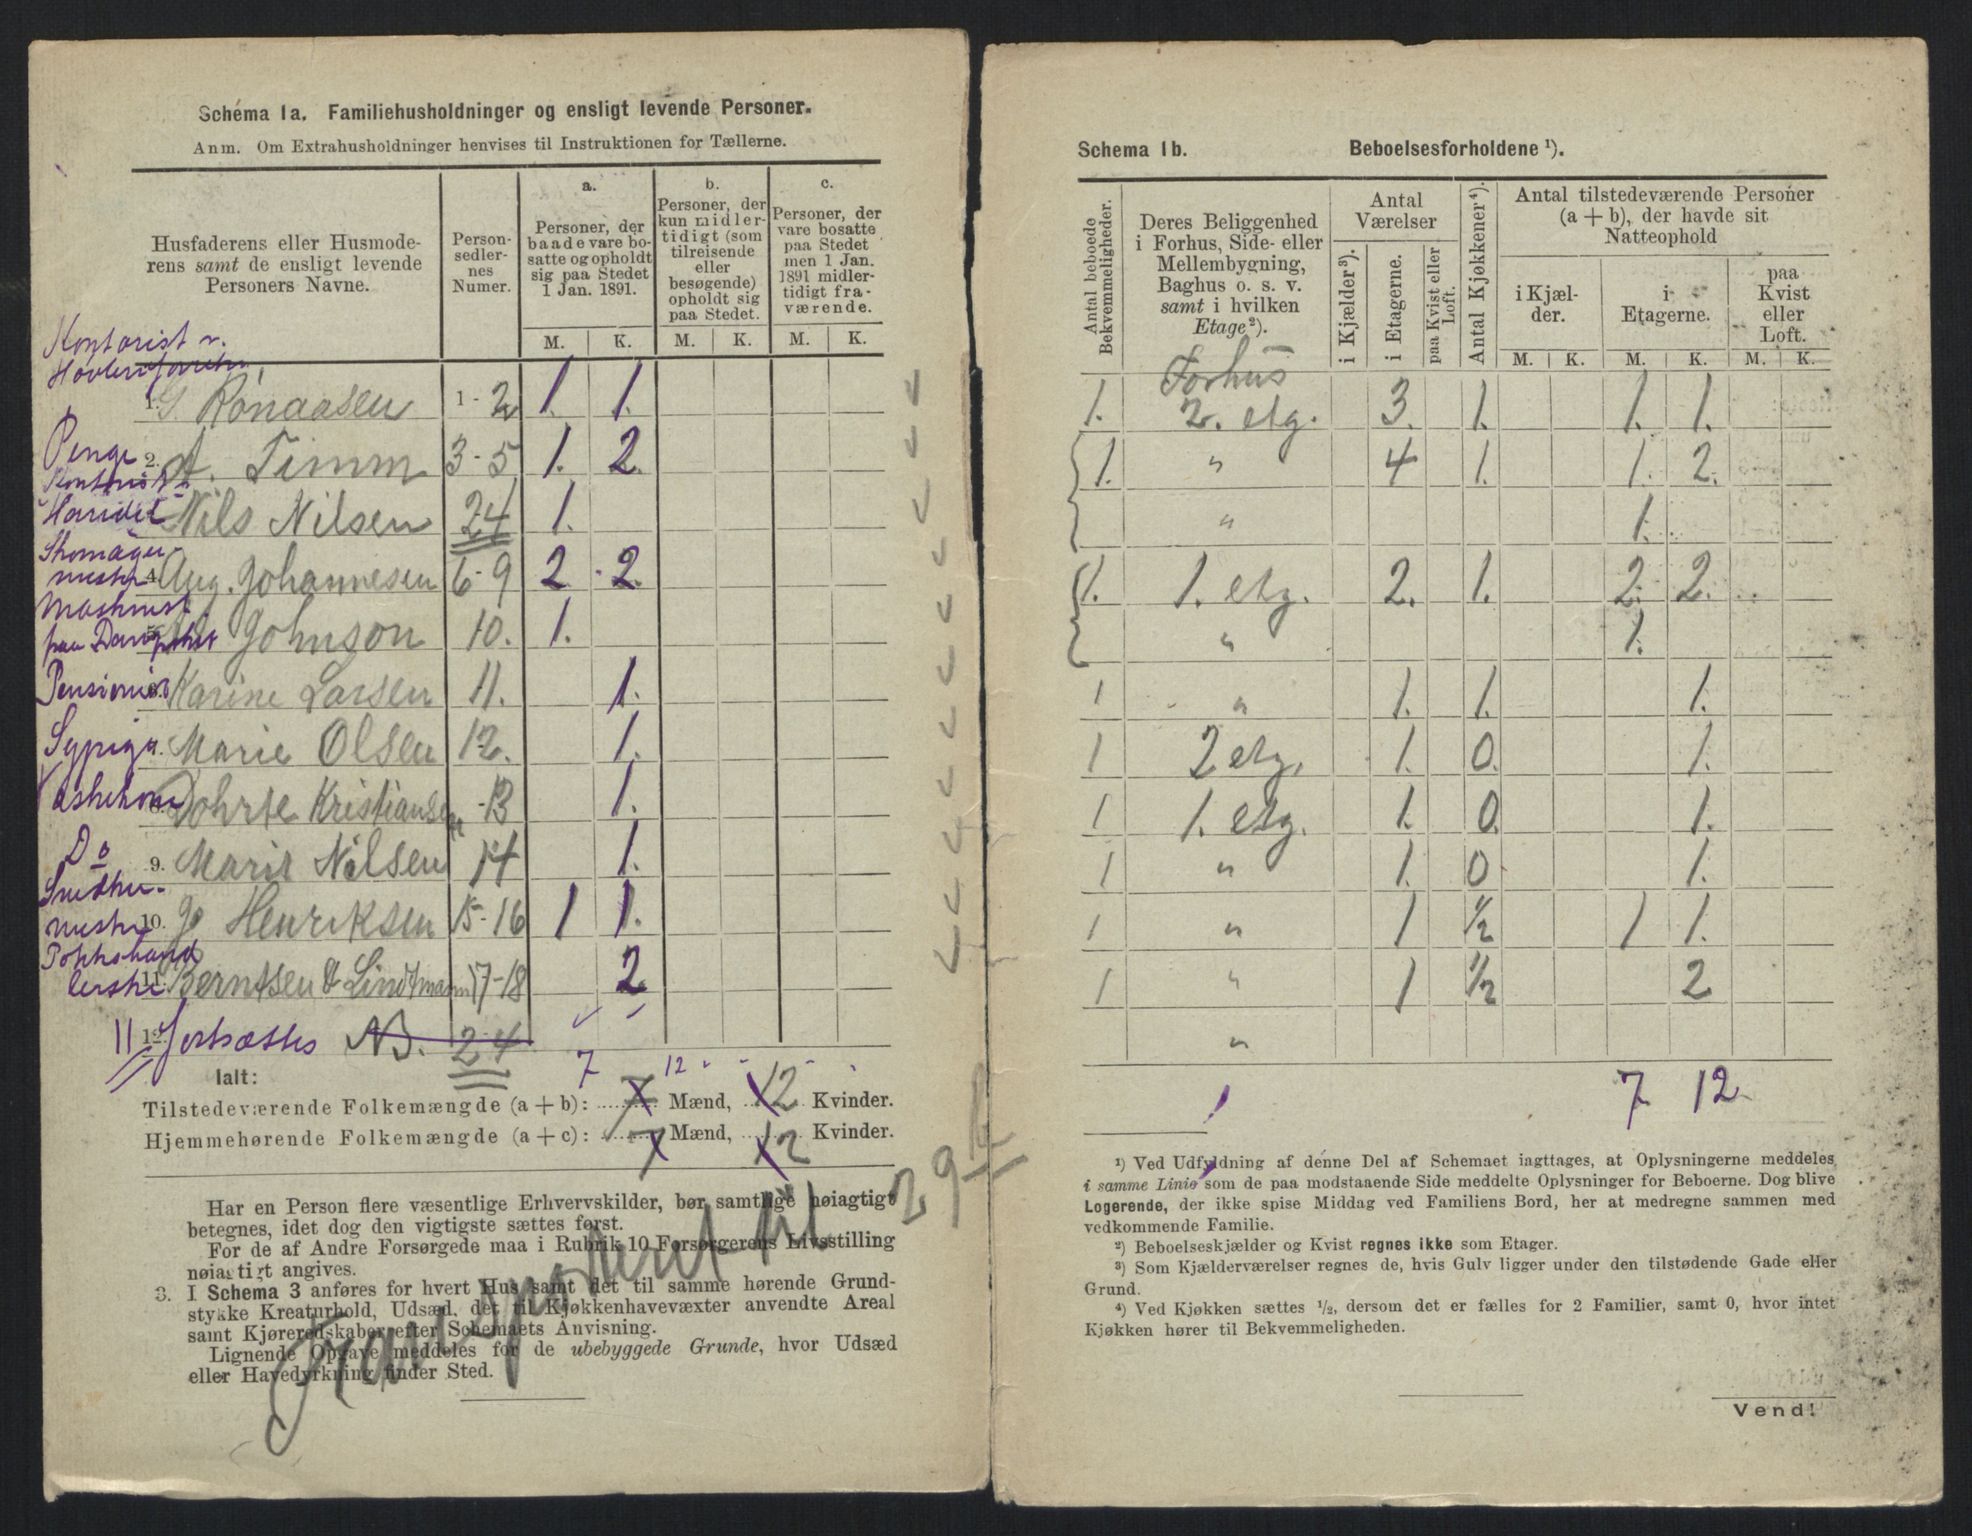 Schema 1a. Familiehusholdninger og ensligt levende Personer.
Anm. Om Extrahusholdninger henvises til Instruktionen for Tællerne.
Husfaderens eller Husmode-
rens samt de ensligt levende
Personers Navne.
Person-
sedler-
nes
Numer.
a.
Personer, der
baade vare bo-
satte og opholdt
sig paa Stedet
1 Jan. 1891.
b.
Personer, der
kun midler-
tidigt (som
tilreisende
eller
besøgende)
opholdt sig
paa Stedet.
c.
Personer, der
vare bosatte
paa Stedet
men 1 Jan.
1891 midler-
tidigt fra-
værende.
M. K. M. K. M. K.
Kontorist
1. G. Rønaasen 1-2 1. 1.
Penge
2. A. Timm 3-5 1. 2.
Nils Nilsen 24 1.
Skomager
4. Aug. Johannesen 6-9 2 2.
Maskinist
paa
Johnson 10. 1.
Karine Larsen 11. 1.
Sypige. Marie Olsen 12. 1.
Vaskekone Dohrte Kristiansen 13 1.
Do
9. Marie Nilsen 14 1.
10. Jo Henriksen 15-16 1 1.
11. Berntsen & Lindtmann 17-18 2
11 12. Fortsættes N.B. 24
Ialt: 7 12
Tilstedeværende Folkemængde (a + b): 7 Mænd, 12 Kvinder.
Hjemmehørende Folkemængde (a + c): 7 Mænd, 12 Kvinder.
Har en Person flere væsentlige Erhvervskilder, bør samtlige nøiagtigt
betegnes, idet dog den vigtigste sættes først.
For de af Andre Forsørgede maa i Rubrik 10 Forsørgerens Livsstilling
nøiagtigt angives.
3. I Schema 3 anføres for hvert Hus samt det til samme hørende Grund-
stykke Kreaturhold, Udsæd, det til Kjøkkenhavevæxter anvendte Areal
samt Kjøreredskaber efter Schemaets Anvisning.
Lignende Opgave meddeles for de ubebyggede Grunde, hvor Udsæd
eller Havedyrkning finder Sted.
Transporteret til 29
Schema 1b. Beboelsesforholdene ¹).
Antal beboede
Bekvemmeligheder.
Deres Beliggenhed
i Forhus, Side- eller
Mellembygning,
Baghus o. s. v.
samt i hvilken
Etage²).
Antal
Værelser
i Kjælder³).
i Etagerne.
paa Kvist eller
Loft.
Antal Kjøkkener⁴).
Antal tilstedeværende Personer
(a + b), der havde sit
Natteophold
i Kjæl-
der.
i
Etagerne.
paa
Kvist
eller
Loft.
M. K. M. K. M. K.
Forhus
1. 2. etg. 3. 1. 1. 1.
1. " 4 1. 1. 2.
" 1.
1. 1. etg. 2. 1. 2. 2.
" 1.
1 " 1. 1. 1.
1 2 etg. 1. 0. 1.
1 1. etg. 1. 0. 1.
1 " 1. 0 1.
1 " 1 1/2 1 1.
1 " 1 1/2 2
"
7 12
¹) Ved Udfyldning af denne Del af Schemaet iagttages, at Oplysningerne meddeles
i samme Linie som de paa modstaaende Side meddelte Oplysninger for Beboerne. Dog blive
Logerende, der ikke spise Middag ved Familiens Bord, her at medregne sammen med
vedkommende Familie.
²) Beboelseskjælder og Kvist regnes ikke som Etager.
³) Som Kjælderværelser regnes de, hvis Gulv ligger under den tilstødende Gade eller
Grund.
⁴) Ved Kjøkken sættes ½, dersom det er fælles for 2 Familier, samt 0, hvor intet
Kjøkken hører til Bekvemmeligheden.
Vend!